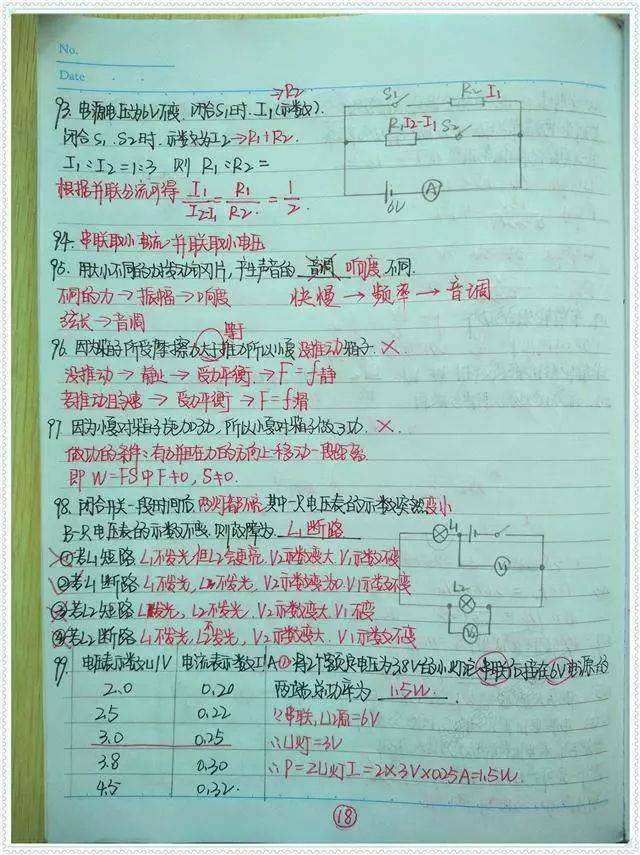 No.
Date
93. 电源电压为6V不变. 闭合S1时. I1(示数). →R2
闭合S1. S2时. 示数为I2→R1+R2.
I1:I2=1:3 则 R1:R2=
根据并联分流可得 I1/(I2-I1)=R1/R2=1/2.
S1 R2 I1
R1 I2-I1 S2
6V A
94. 串联取小电流 并联取小电压
95. 用大小不同的力拨动钢片, 产生声音的 音调 响度 不同.
不同的力→振幅→响度 快慢→频率→音调
弦长→音调
等于
96. 因为箱子所受摩擦力大于推力所以小夏没推动箱子. ×
没推动→静止→受力平衡→F=f静
若推动且匀速→受力平衡→F=f滑
97. 因为小夏对箱子施加了力, 所以小夏对箱子做了功. ×.
做功的条件: 有力且在力的方向上移动一段距离.
即 W=FS中F≠0, S≠0.
98. 闭合开关一段时间后 两灯都熄 其中一只电压表的示数突然变小
另一只电压表的示数不变. 则故障为 L1断路
①若L1短路 L1不发光 但L2会更亮. V2示数变大. V1示数不变
②若L1断路 L1不发光, L2不发光, V2示数变为0. V1示数不变
③若L2短路 L1发光, L2不发光, V2示数变大, V1不变
④若L2断路 L1不发光, L2不发光, V2示数变大. V1示数不变
L1
V1
L2
V2
99. 电压表示数U/V 电流表示数I/A ①将2个额定电压为3.8V的小灯泡串联后接在6V电源的
2.0 0.20 两端总功率为 1.5W.
2.5 0.22 ∵串联, U源=6V
3.0 0.25 ∴U灯=3V
3.8 0.30 ∴P=2U灯I=2×3V×0.25A=1.5W.
4.5 0.32
18